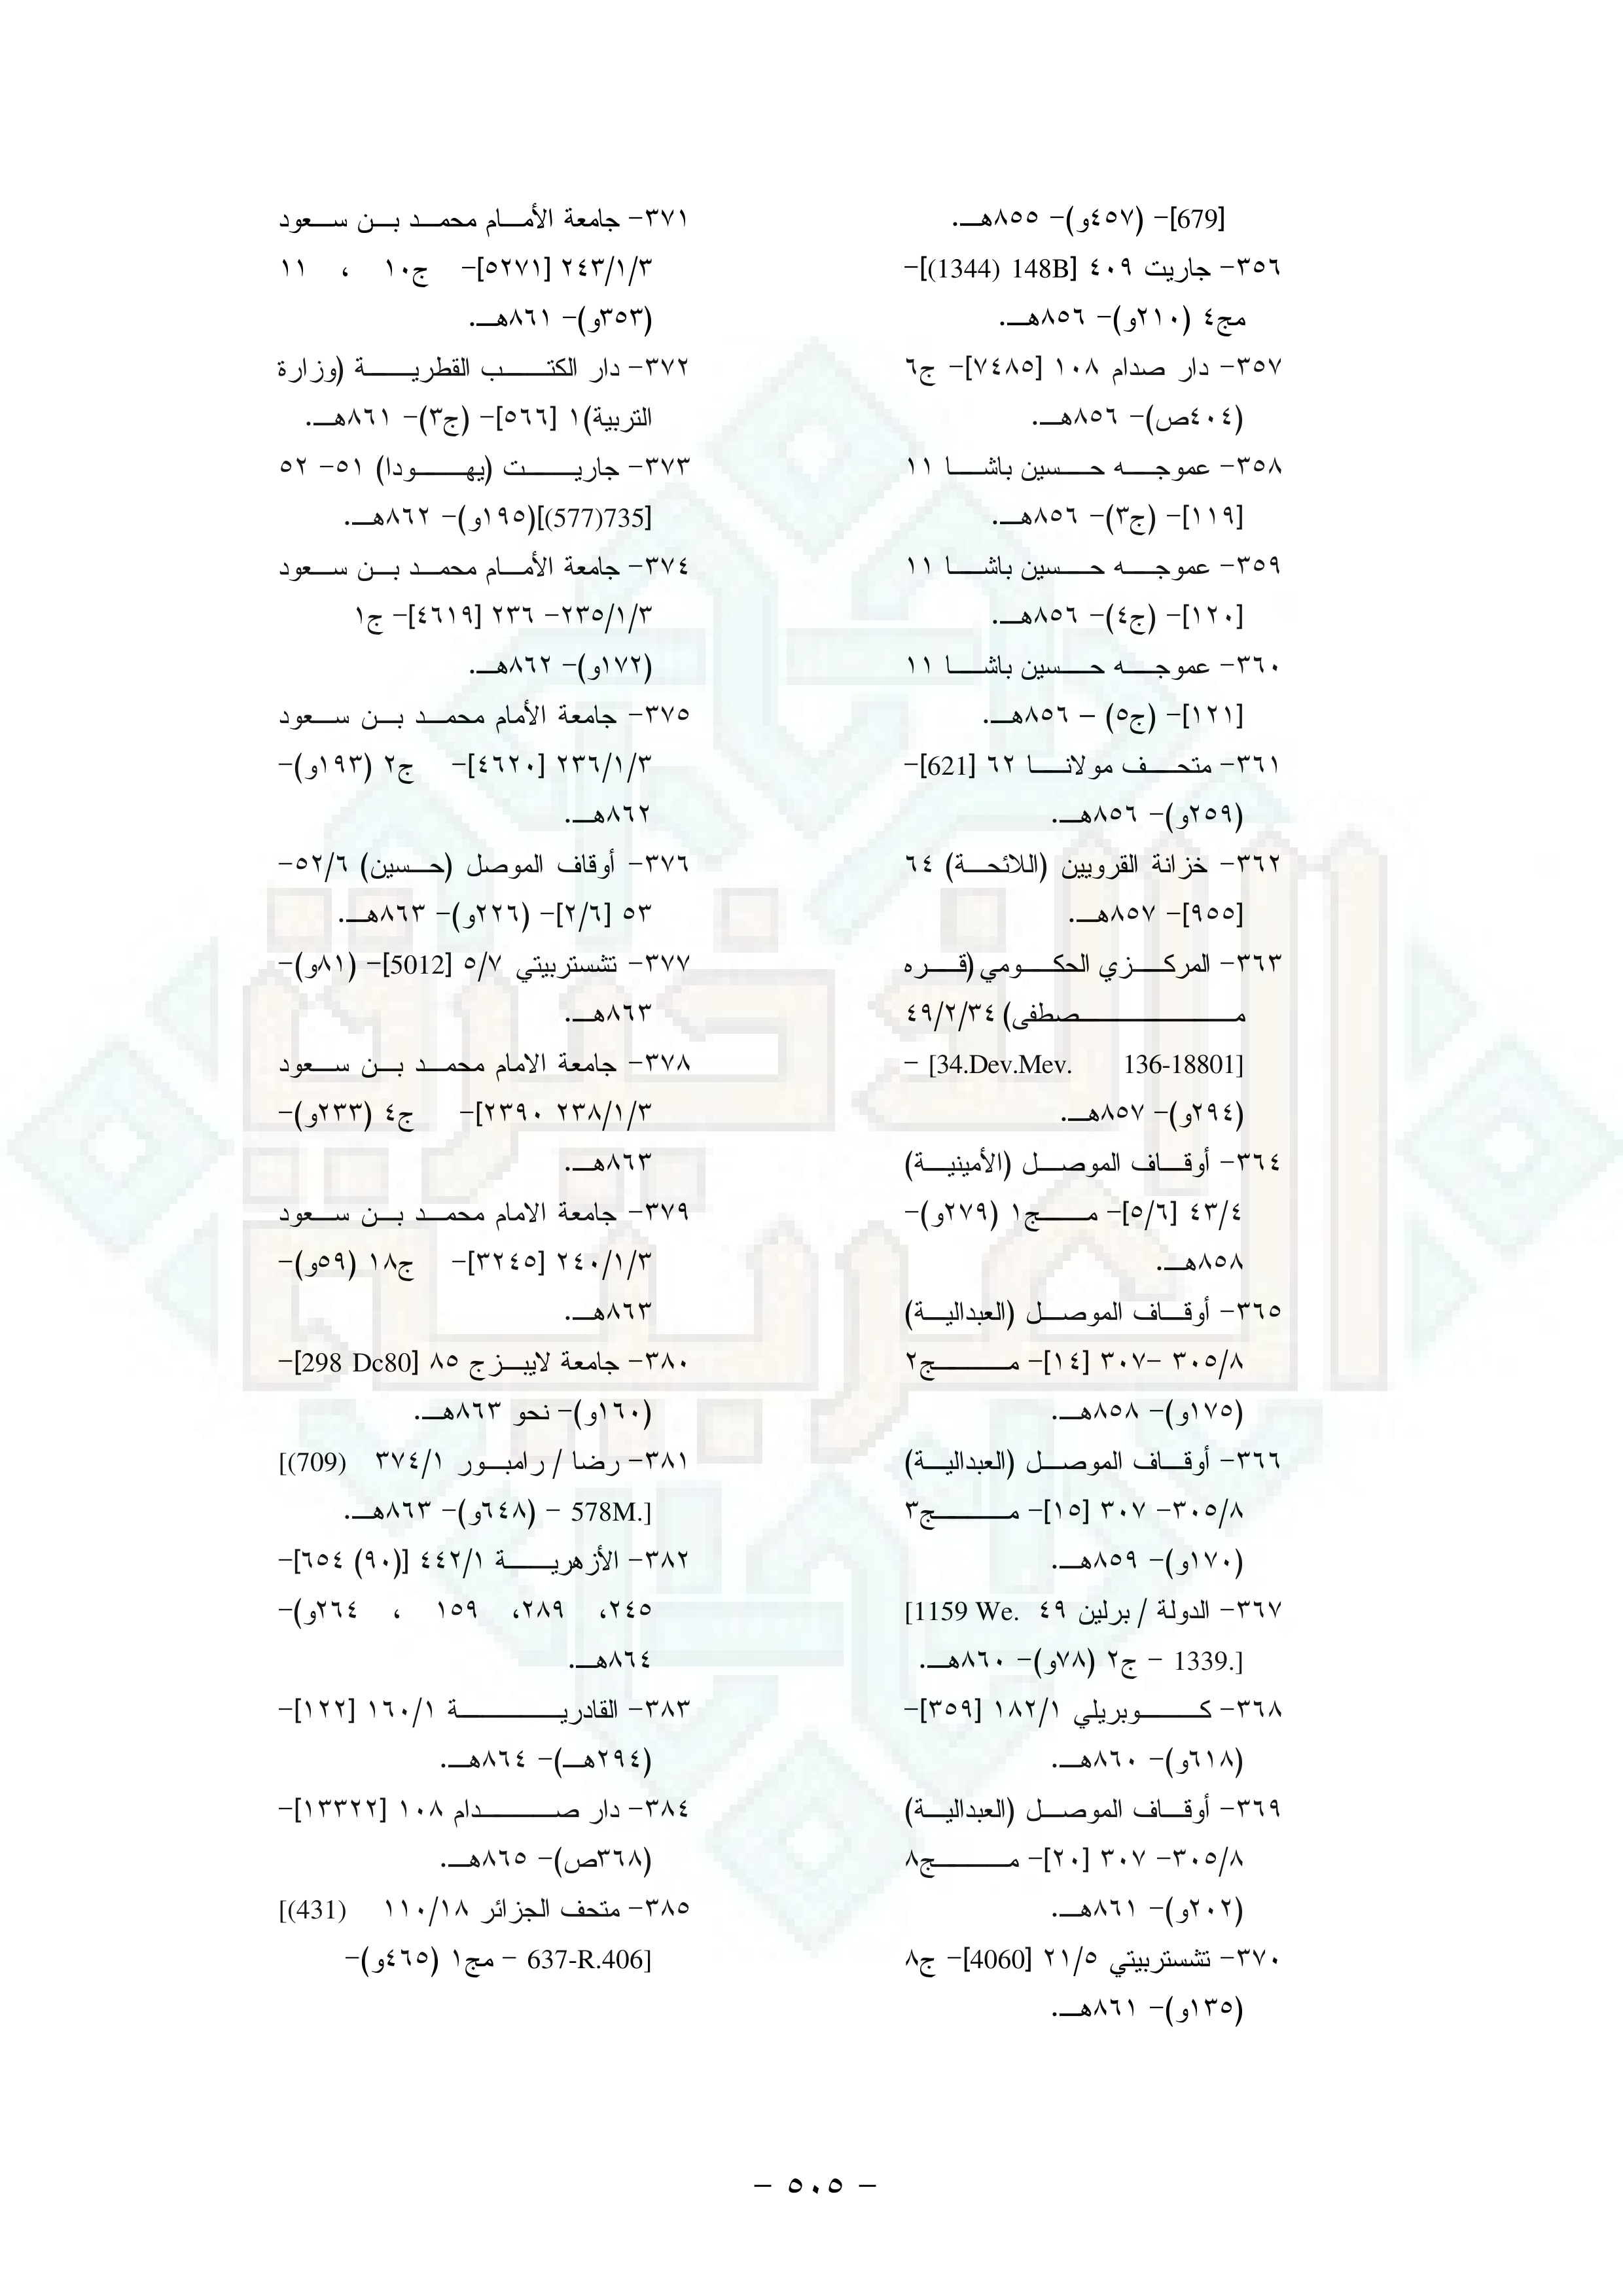 [679]- (٤٥٧و)- ٨٥٥هـ.
٣٥٦- جاريت ٤٠٩ [148B (1344)]-
مج٤ (٢١٠و)- ٨٥٦هـ.
٣٥٧- دار صدام ١٠٨ [٧٤٨٥]- ج٦
(٤٠٤ص)- ٨٥٦هـ.
٣٥٨- عموجه حسين باشا ١١
[١١٩]- (ج٣)- ٨٥٦هـ.
٣٥٩- عموجه حسين باشا ١١
[١٢٠]- (ج٤)- ٨٥٦هـ.
٣٦٠- عموجه حسين باشا ١١
[١٢١]- (ج٥) – ٨٥٦هـ.
٣٦١- متحف مولانا ٦٢ [621]-
(٢٥٩و)- ٨٥٦هـ.
٣٦٢- خزانة القرويين (اللائحة) ٦٤
[٩٥٥]- ٨٥٧هـ.
٣٦٣- المركزي الحكومي (قره
مصطفى) ٤٩/٢/٣٤
[34.Dev.Mev. 136-18801] -
(٢٩٤و)- ٨٥٧هـ.
٣٦٤- أوقاف الموصل (الأمينية)
٤٣/٤ [٥/٦]- مج١ (٢٧٩و)-
٨٥٨هـ.
٣٦٥- أوقاف الموصل (العبدالية)
٣٠٥/٨ -٣٠٧ [١٤]- مج٢
(١٧٥و)- ٨٥٨هـ.
٣٦٦- أوقاف الموصل (العبدالية)
٣٠٥/٨- ٣٠٧ [١٥]- مج٣
(١٧٠و)- ٨٥٩هـ.
٣٦٧- الدولة / برلين ٤٩ [1159 We.
1339.] - ج٢ (٧٨و)- ٨٦٠هـ.
٣٦٨- كوبريلي ١٨٢/١ [٣٥٩]-
(٦١٨و)- ٨٦٠هـ.
٣٦٩- أوقاف الموصل (العبدالية)
٣٠٥/٨- ٣٠٧ [٢٠]- مج٨
(٢٠٢و)- ٨٦١هـ.
٣٧٠- تشستربيتي ٢١/٥ [4060]- ج٨
(١٣٥و)- ٨٦١هـ.
٣٧١- جامعة الأمام محمد بن سعود
٢٤٣/١/٣ [٥٢٧١]- ج١٠ ، ١١
(٣٥٣و)- ٨٦١هـ.
٣٧٢- دار الكتب القطرية (وزارة
التربية)١ [٥٦٦]- (ج٣)- ٨٦١هـ.
٣٧٣- جاريت (يهودا) ٥١- ٥٢
[735(577)](١٩٥و)- ٨٦٢هـ.
٣٧٤- جامعة الأمام محمد بن سعود
٢٣٥/١/٣- ٢٣٦ [٤٦١٩]- ج١
(١٧٢و)- ٨٦٢هـ.
٣٧٥- جامعة الأمام محمد بن سعود
٢٣٦/١/٣ [٤٦٢٠]- ج٢ (١٩٣و)-
٨٦٢هـ.
٣٧٦- أوقاف الموصل (حسين) ٥٢/٦-
٥٣ [٢/٦]- (٢٢٦و)- ٨٦٣هـ.
٣٧٧- تشستربيتي ٥/٧ [5012]- (٨١و)-
٨٦٣هـ.
٣٧٨- جامعة الامام محمد بن سعود
٢٣٨/١/٣ ٢٣٩٠]- ج٤ (٢٣٣و)-
٨٦٣هـ.
٣٧٩- جامعة الامام محمد بن سعود
٢٤٠/١/٣ [٣٢٤٥]- ج١٨ (٥٩و)-
٨٦٣هـ.
٣٨٠- جامعة لايبزج ٨٥ [298 Dc80]-
(١٦٠و)- نحو ٨٦٣هـ.
٣٨١- رضا / رامبور ٣٧٤/١ [(709)
578M.] - (٦٤٨و)- ٨٦٣هـ.
٣٨٢- الأزهرية ٤٤٢/١ [(٩٠) ٦٥٤]-
٢٤٥، ٢٨٩، ١٥٩ ، ٢٦٤و)-
٨٦٤هـ.
٣٨٣- القادرية ١٦٠/١ [١٢٢]-
(٢٩٤هـ)- ٨٦٤هـ.
٣٨٤- دار صدام ١٠٨ [١٣٣٢٢]-
(٣٦٨ص)- ٨٦٥هـ.
٣٨٥- متحف الجزائر ١١٠/١٨ [(431)
637-R.406] - مج١ (٤٦٥و)-
- ٥٠٥ -